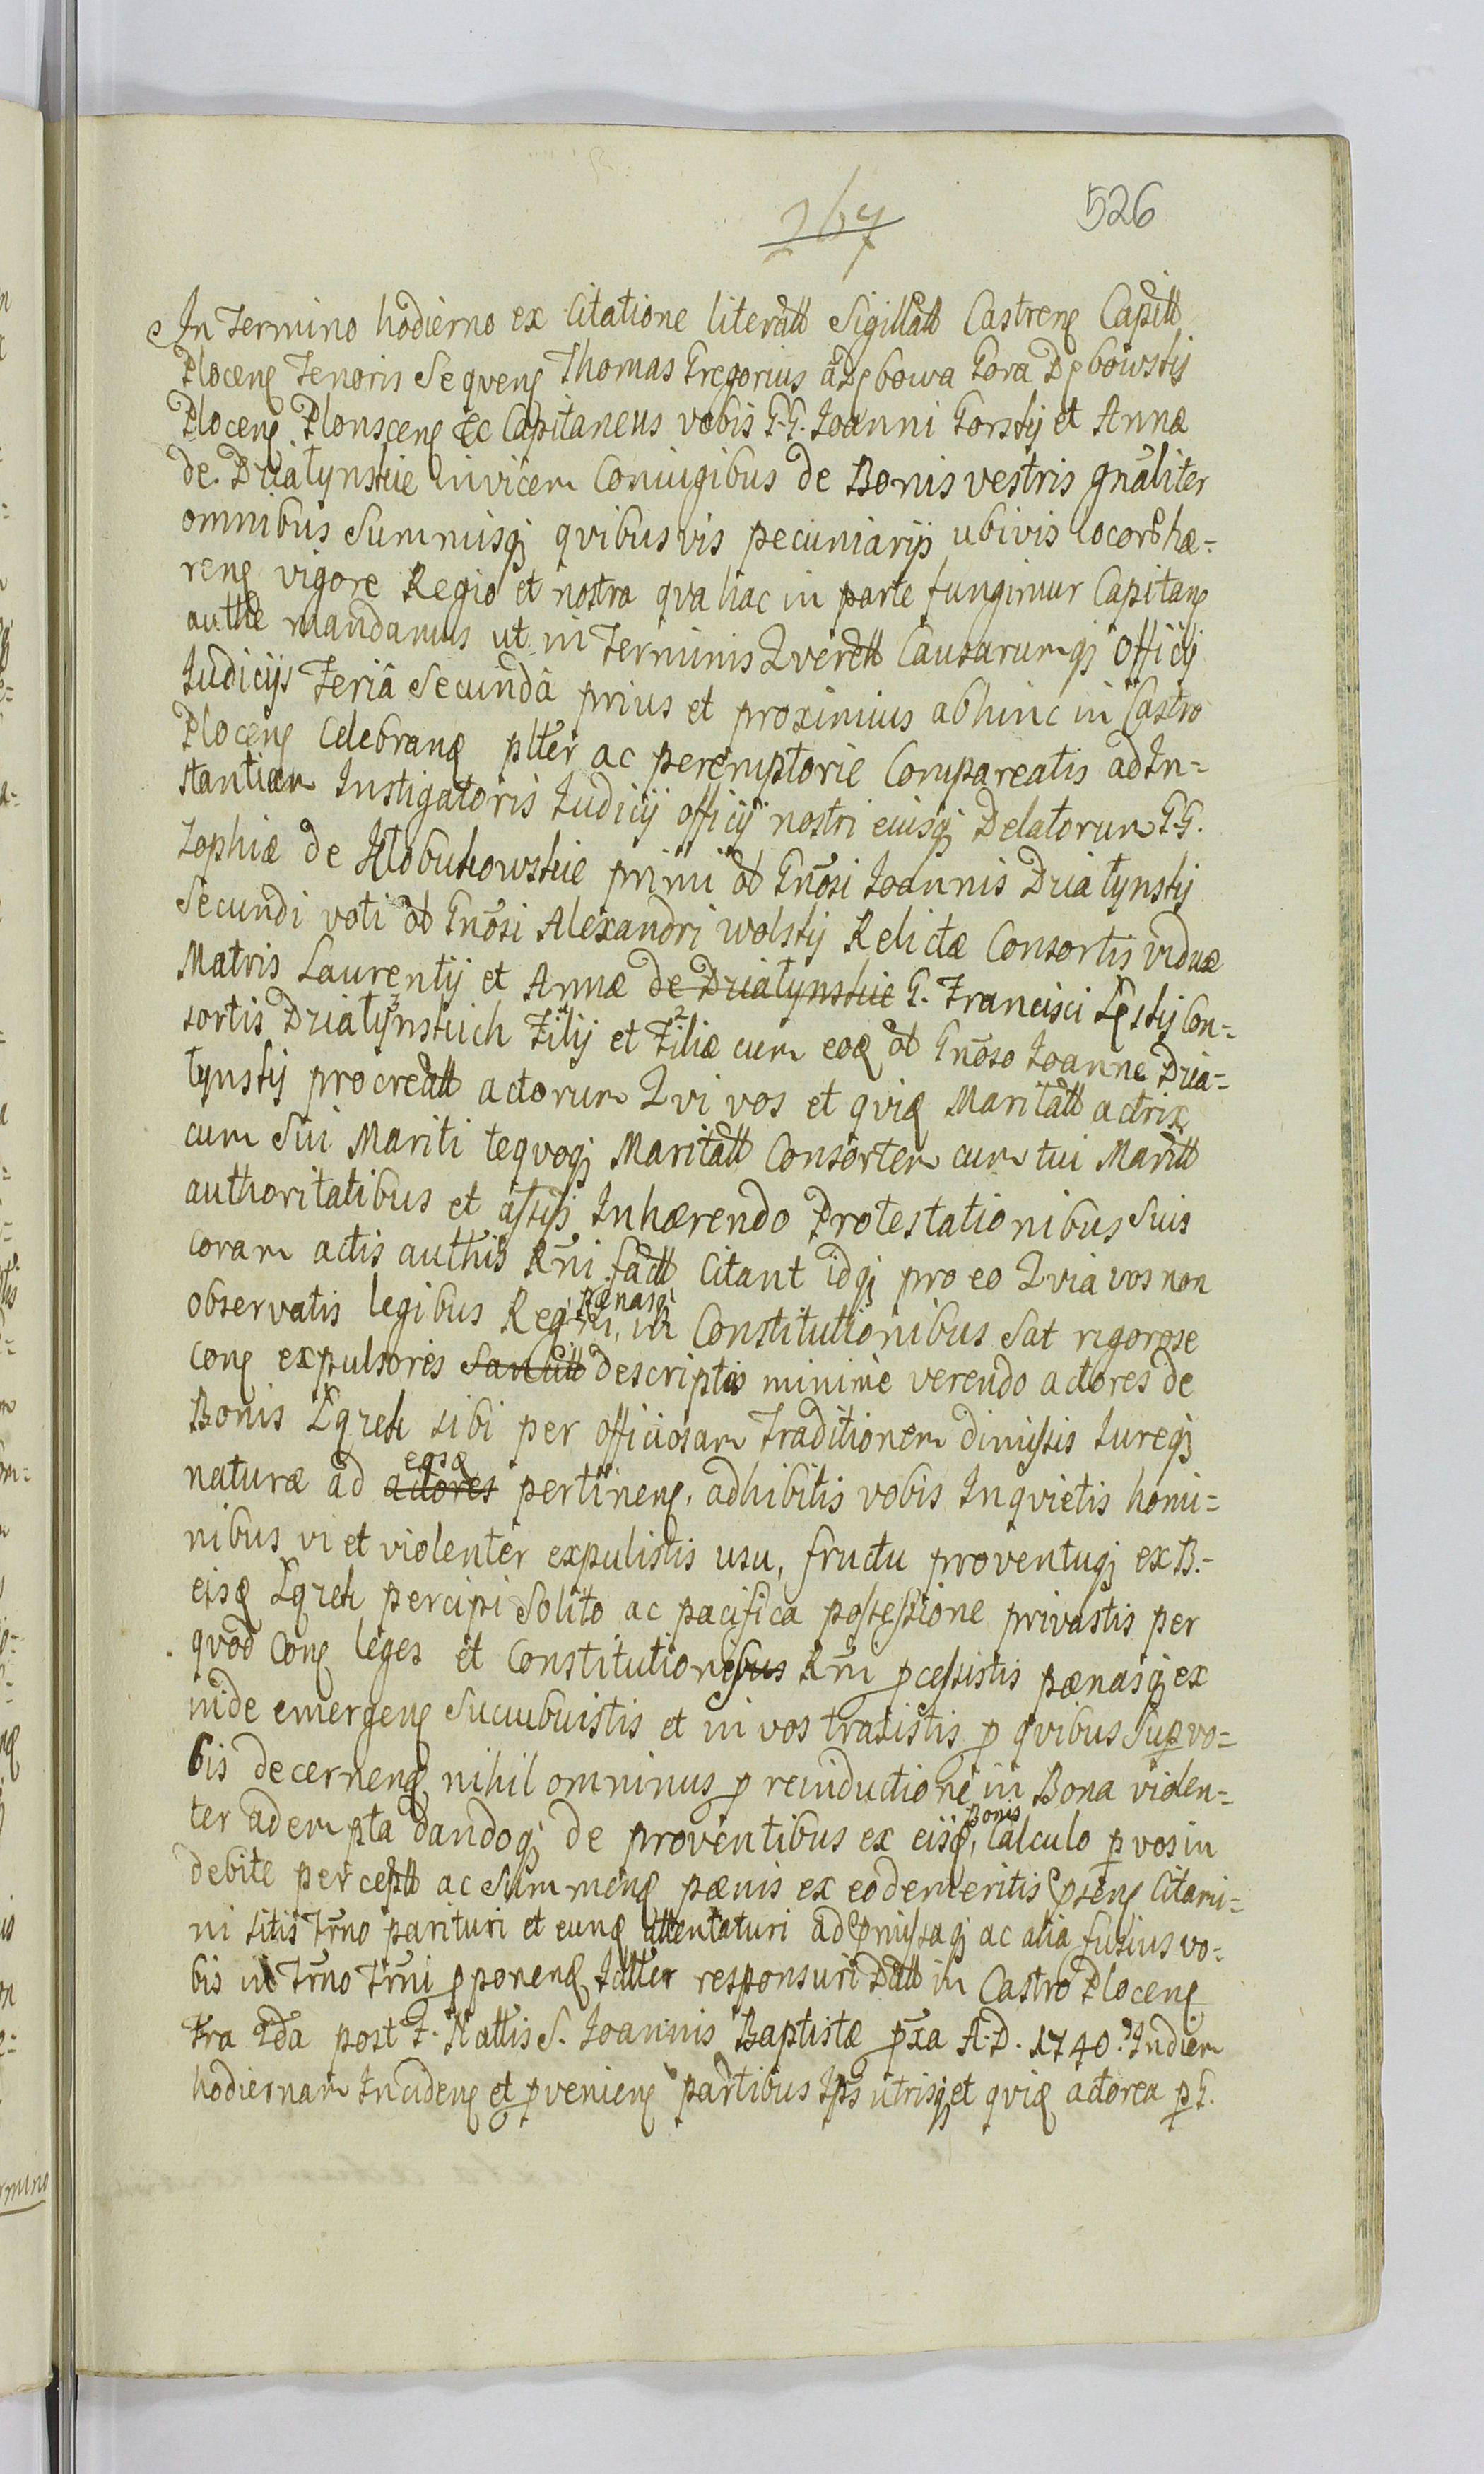 267 526
In Termino hodierno ex Citatione literatt Sigillatt Castrenę Capitt
Plocenę Tenoris Seqvenę Thomas Gregorius a Dębowa Gora Dębowskij
Plocenę Plonscenę &c Capitaneus vobis G.G. Ioanni Gorskij et Annæ
de Driatynskie invicem Coniugibus de Bonis vestris gnãliter
omnibus Summisqȝ qvibusvis pecuniarijs ubivis locor hæ=
renę vigore Regio et nostra qva hac in parte fungimur Capitane
autthe mandamus ut in Terminis Qverell Causarumqȝ Officij
Iudicijs Feriâ Secundâ prius et proximius abhinc in Castro
Plocenę Celebranę plter ac peremptorie Compareatis ad In=
stantiam Instigatoris Iudicij officij nostri eiusqȝ Delatorum G.G.
Zophiæ de Kłobukowskie primi ot Gnõsi Ioannis Driatynskij
Secundi voti ot Gnõsi Alexandri wolskij Relictæ Consortis viduæ
Matris Laurentij et Annæ de Driatynskie G. Francisci Lęskij Con=
sortis Driatynskich Filij et Filiæ cum eoę ot Gnõso Ioanne Dria=
tynskij procreatt actorum Qvi vos et qvię Maritatt actrix
cum Sui Mariti teqvoqȝ Maritatt Consortem cum tui Maritt
authoritatibus et assijs Inhærendo Protestationibus Suis
coram actis autthis Rñi fact Citant idqȝ pro eo Qvia vos non
observatis legibus Regni, Pænasqȝ in Constitutionibus Sat rigorose
Conę expulsores Sancitt descriptas minimè verendo actores de
Bonis Lgzek sibi per officiosam Traditionem dimissis Iureqȝ
naturæ ad actores eosę pertinenę, adhibitis vobis Inqvietis homi=
nibus vi et violenter expulistis usu, fructu proventuqȝ ex B.=
eisę Lgzek percipi Solito ac pacifica possessione privastis per
qvod Conę leges et Constitutionesbus Rñi pcessistis pænasqȝ ex
inde emergenę Sucubuistis et in vos traxistis p qvibus Sup vo=
bis decernenę nihil omninus p reinductione in Bona violen=
ter adempta dandoqȝ de proventibus ex eisę, Bonis Calculo p vos in
debite perceptt ac Summenę pænis ex eo demeritis psenę Citami=
ni sitis Trno parituri et eunę attentaturi ad pmissaqȝ ac alia fusius vo=
bis in Trno Trñi pponenę Iatter responsuri Datt in Castro Plocenę
Fra 2da post F. Nattis S. Ioannis Baptistæ pxa A.D. 1740. In diem
hodiernam Incidenę et pvenienę partibus Ips utrisqȝ et qvię actorea p G.